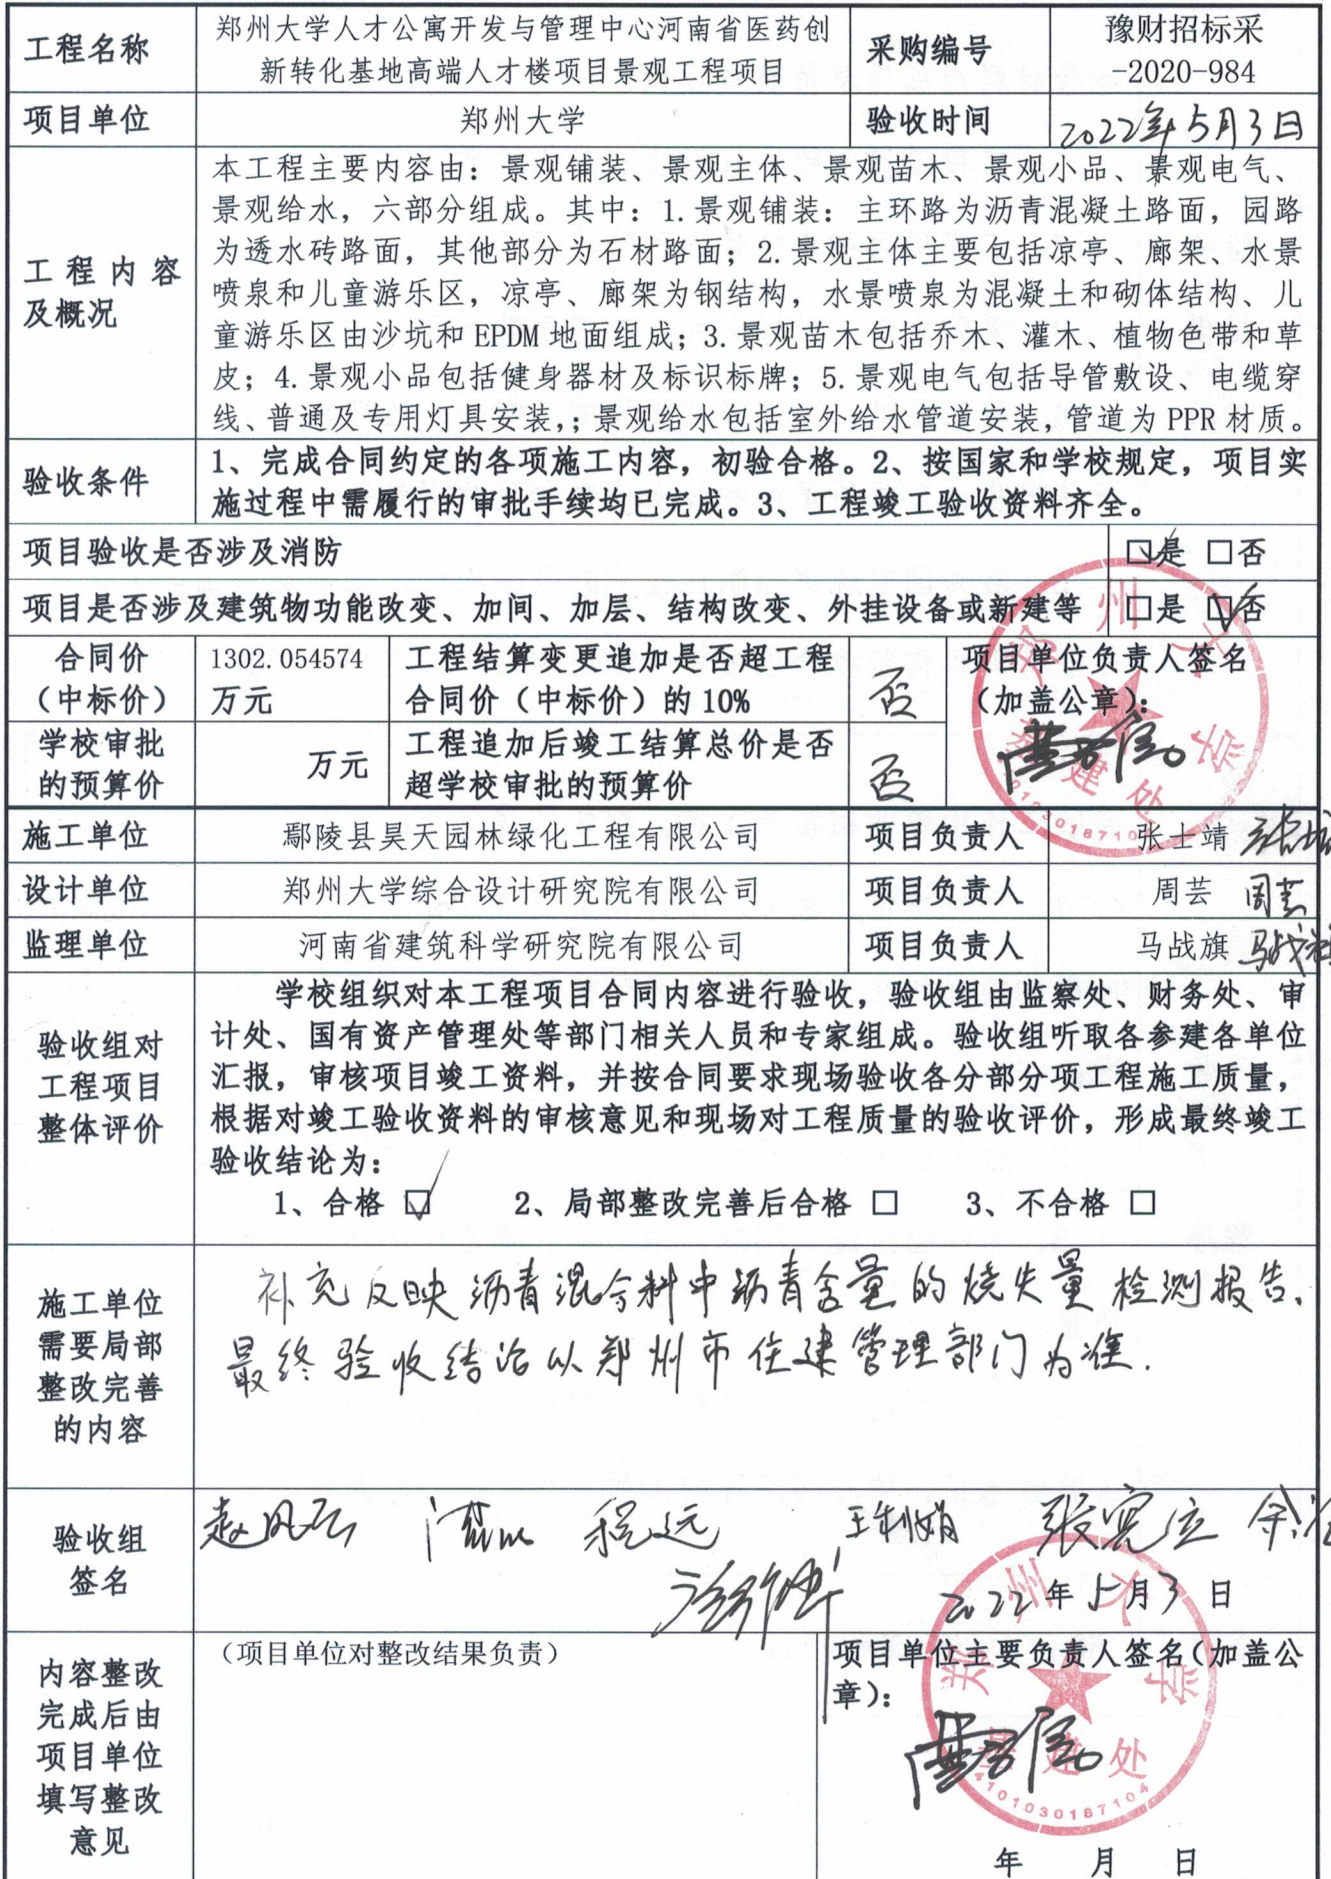 工程名称
郑州大学人才公寓开发与管理中心河南省医药创
新转化基地高端人才楼项目景观工程项目
采购编号
豫财招标采
-2020-984
项目单位
郑州大学
验收时间
2022年5月3日
工程内容
及概况
本工程主要内容由：景观铺装、景观主体、景观苗木、景观小品、景观电气、
景观给水，六部分组成。其中：1.景观铺装：主环路为沥青混凝土路面，园路
为透水砖路面，其他部分为石材路面；2.景观主体主要包括凉亭、廊架、水景
喷泉和儿童游乐区，凉亭、廊架为钢结构，水景喷泉为混凝土和砌体结构、儿
童游乐区由沙坑和 EPDM 地面组成；3.景观苗木包括乔木、灌木、植物色带和草
皮；4.景观小品包括健身器材及标识标牌；5.景观电气包括导管敷设、电缆穿
线、普通及专用灯具安装,；景观给水包括室外给水管道安装，管道为 PPR 材质。
验收条件
1、完成合同约定的各项施工内容，初验合格。2、按国家和学校规定，项目实
施过程中需履行的审批手续均已完成。3、工程竣工验收资料齐全。
项目验收是否涉及消防
☑是 □否
项目是否涉及建筑物功能改变、加间、加层、结构改变、外挂设备或新建等
□是 ☑否
合同价
（中标价）
1302.054574
万元
工程结算变更追加是否超工程
合同价（中标价）的 10%
否
项目单位负责人签名
（加盖公章）：
学校审批
的预算价
万元
工程追加后竣工结算总价是否
超学校审批的预算价
否
郑州大学
基建处
施工单位
鄢陵县昊天园林绿化工程有限公司
项目负责人
张士靖
设计单位
郑州大学综合设计研究院有限公司
项目负责人
周芸 周芸
监理单位
河南省建筑科学研究院有限公司
项目负责人
马战旗 马战旗
验收组对
工程项目
整体评价
学校组织对本工程项目合同内容进行验收，验收组由监察处、财务处、审
计处、国有资产管理处等部门相关人员和专家组成。验收组听取各参建各单位
汇报，审核项目竣工资料，并按合同要求现场验收各分部分项工程施工质量，
根据对竣工验收资料的审核意见和现场对工程质量的验收评价，形成最终竣工
验收结论为：
1、合格 ☑ 2、局部整改完善后合格 □ 3、不合格 □
施工单位
需要局部
整改完善
的内容
补充反映沥青混合料中沥青含量的烧失量检测报告、
最终验收结论以郑州市住建管理部门为准.
验收组
签名
赵风云 程远 王利娟
2022年5月3日
内容整改
完成后由
项目单位
填写整改
意见
（项目单位对整改结果负责）
项目单位主要负责人签名（加盖公
章）：
郑州大学
基建处
4101030187104
年 月 日